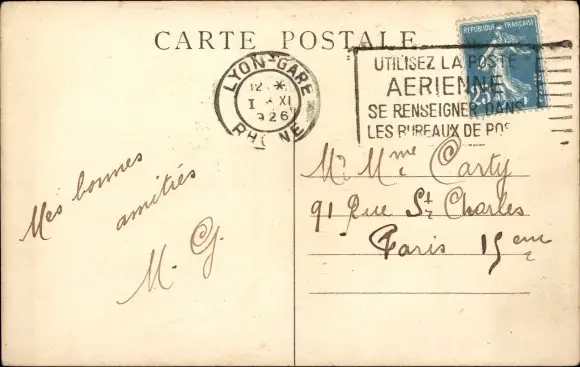 CARTE POSTALE
REPUBLIQUE FRANÇAISE
LYON-GARE
12 *
1 XI
926
RHONE
UTILISEZ LA POSTE
AERIENNE
SE RENSEIGNER DANS
LES BUREAUX DE POS
Mes bonnes
amitiés
M. G.
Mr Mme Carty
91 Rue St Charles
Paris 15eme